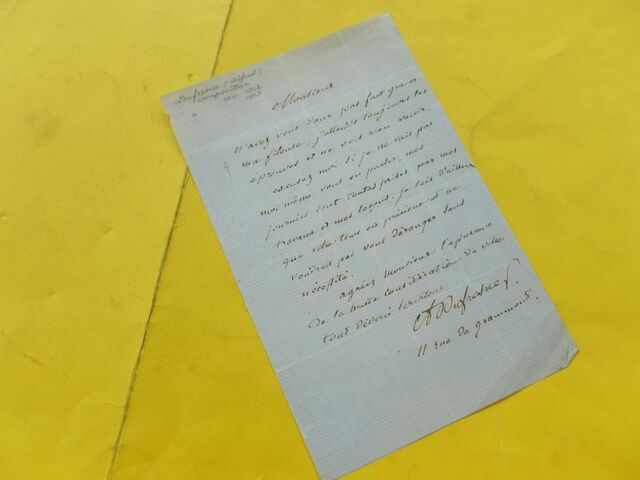 Dufresne (Alfred)
compositeur
Monsieur
N'avez vous donc pas fait graver
ma fileuse, j'attends toujours les
épreuves et ne vois rien venir.
excusez moi si je ne vais pas
moi même vous en parler, mes
journées sont toutes prises par mes
travaux et mes leçons. je sais d'ailleurs
que votre tems est précieux et ne
voudrais pas vous déranger sans
nécessité.
agréez Monsieur l'assurance
De la haute considération de votre
tout dévoué serviteur
ADufresne
11 rue de grammont.